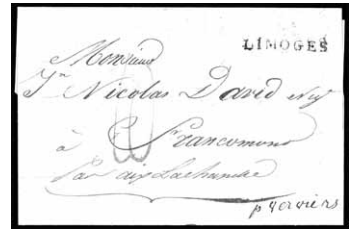 LIMOGES
Monsieur
Jn Nicolas David
à Francomont
Par aix Lachapelle
p verviers